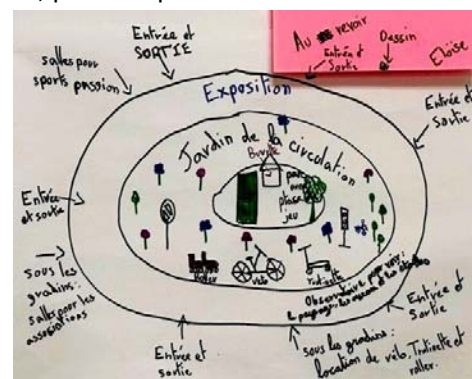 Au revoir
Dessin
Eloïse
Entrée et
Sortie
Entrée et
SORTIE
salles pour
sports passion
Exposition
Entrée et
Sortie
Jardin de la circulation
Buvette
parc
jeu
Entrée
et sortie
sous les
gradins:
salles pour les
associations
Roller
Vélo
Trotinette
Observatoire pour voir:
le paysage, les
Entrée et
Sortie
Entrée et
sortie
sous les gradins:
location de vélo, Trotinette et
roller.